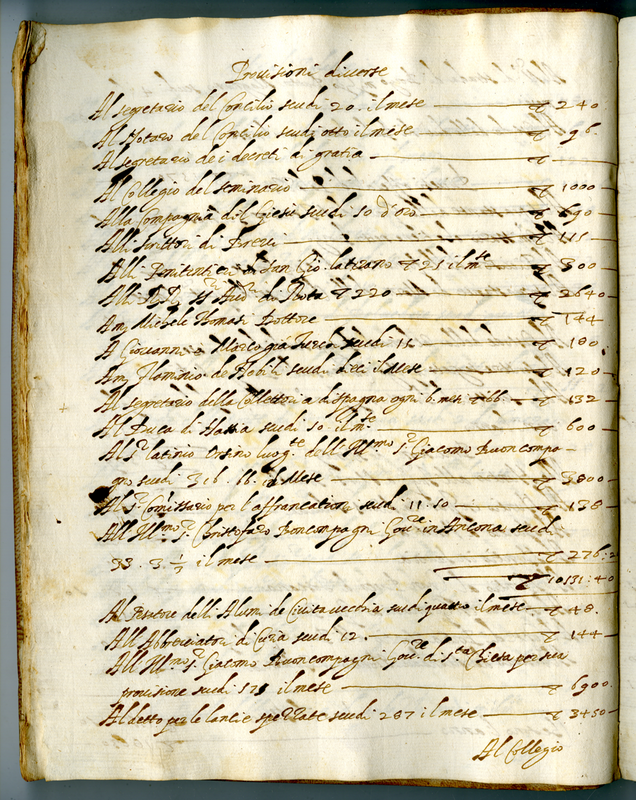 Provisioni diverse
Al segretario del Concilio scudi 20. il mese ▽ 240
Al Notaro del Concilio scudi otto il mese ▽ 96
Al segretario de i decreti di gratia ▽
Al Collegio del seminario ▽ 1000
Alla Compagnia del Giesù scudi 50 d'oro ▽ 690
Alli scrittori di Brevi ▽ 115
Alli Penitentieri di San Gio. laterano ▽ 25 il m.se ▽ 300
Alli Aud.ri di Rota ▽ 220 ▽ 2640
A m. Michele Thomasi Dottore ▽ 144
A Giovanni Marco già Turco scudi 15 ▽ 180
A m. Flominio de Nobili scudi dieci il Mese ▽ 120
Al segretario della Collettoria di spagna ogni 6. mesi ▽ 66 ▽ 132
Al Duca di Massa scudi 50. il m.se ▽ 600
Al S.r latinio Orsino luog.te dell' Ill.mo S.r Giacomo Buoncompa-
gno scudi 316. 66. il Mese ▽ 3800
Al S. Comissario per l'affrancationi scudi 11. 50 ▽ 138
All' Ill.mo S. Christofaro Boncompagni Gov.re in Ancona scudi
23. 3. 1/3 il mese ▽ 276:
▽ 10131:40
Al Pesatore delli Alumi de Civitavecchia scudi quattro il mese ▽ 48.
All' Abbreviatori di Curia scudi 12. ▽ 144
All' Ill.mo S. Giacomo Buoncompagni Gov.re di S.ta Chiesa per sua
provisione scudi 575 il mese ▽ 6900.
Al detto per le lancie spezzate scudi 287 il mese ▽ 3450
Al Collegio